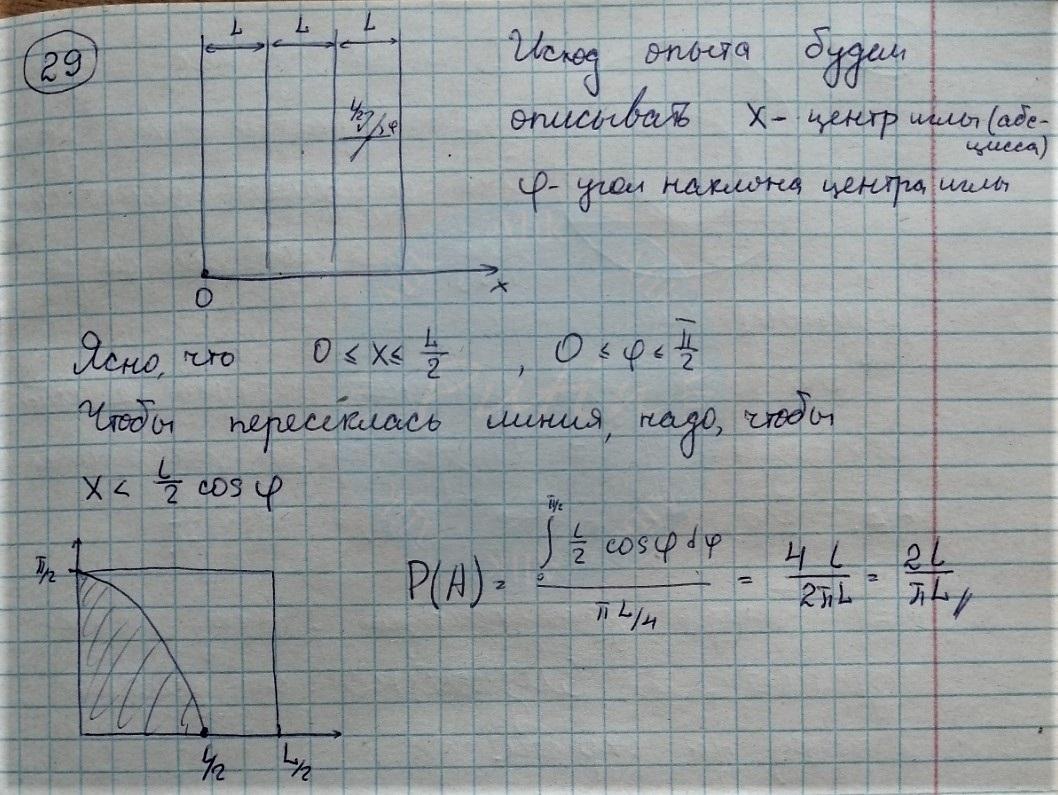 29
L L L
Исход опыта будем
l/2 φ
описывать X - центр иглы (абс-
цисса)
φ - угол наклона центра иглы
0 x
Ясно, что 0 ≤ x ≤ L/2 , 0 ≤ φ ≤ π/2
Чтобы пересеклась линия, надо, чтобы
x < l/2 cos φ
π/2
P(A) = ∫₀^{π/2} l/2 cos φ dφ / (πL/4) = 4 l / 2πL = 2l / πL //
l/2 L/2